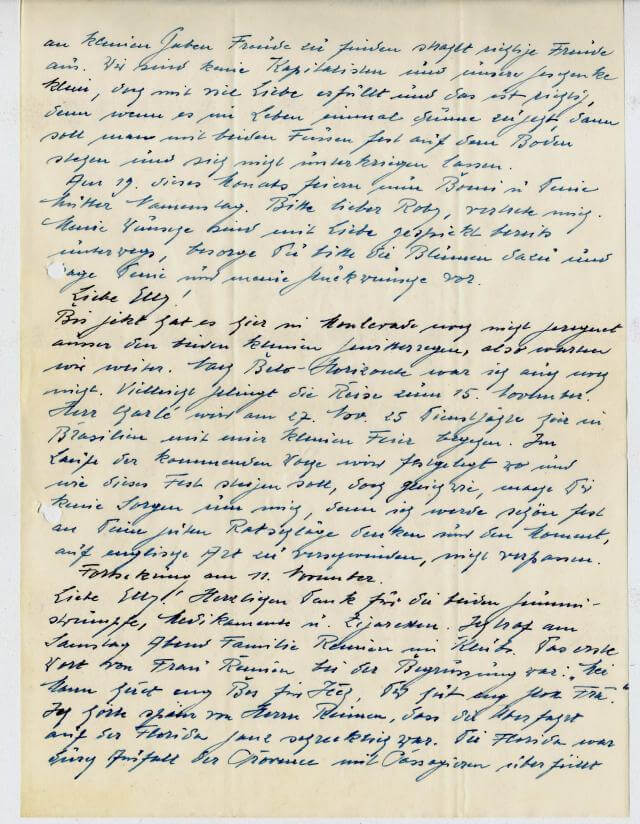 an kleinen Gaben Freude zu finden strahlt richtige Freude
aus. Wir sind keine Kapitalisten und unsere Geschenke
klein, doch mit viel Liebe erfüllt und das ist richtig,
denn wenn es im Leben einmal dünne zugeht, dann
soll man mit beiden Füssen fest auf dem Boden
stehen und sich nicht unterkriegen lassen.
Am 19. dieses Monats feiern nun Bomi u Deine
Mutter Namenstag. Bitte lieber Roby, vertrete mich.
Meine Wünsche sind mit Liebe gespickt bereits
unterwegs, besorge Du bitte die Blumen dazu und
sage Deine und meine Glückwünsche vor.
Liebe Elly!
Bis jetzt hat es hier in Monlevade noch nicht geregnet
ausser den beiden kleinen Gewitterregen, also warten
wir weiter. Nach Belo-Horizonte war ich auch noch
nicht. Vielleicht gelingt die Reise zum 15. November.
Herr Garlé wird am 27. Nov. 25 Dienstjahre hier in
Brasilien mit einer kleinen Feier begehen. Im
Laufe der kommenden Woche wird festgelegt wo und
wie dieses Fest steigen soll, doch gleich wie, mache Dir
keine Sorgen um mich, denn ich werde schön fest
an Deine guten Ratschläge denken und den Moment,
auf englische Art zu verschwinden, nicht verpassen.
Fortsetzung am 11. November.
Liebe Elly! Herzlichen Dank für die beiden Gummi-
strümpfe, Medikamente u. Zigaretten. Ich traf am
Samstag Abend Familie Reunien im Klub. Das erste
Wort von Frau Reunien bei der Begrüssung war: "Mei
Mann huet eng
Ich hörte später von Herrn Reunien, dass die Überfahrt
auf der Florida ganz schrecklich war. Die Florida war
durch Ausfall der Provence mit Passagieren überfüllt